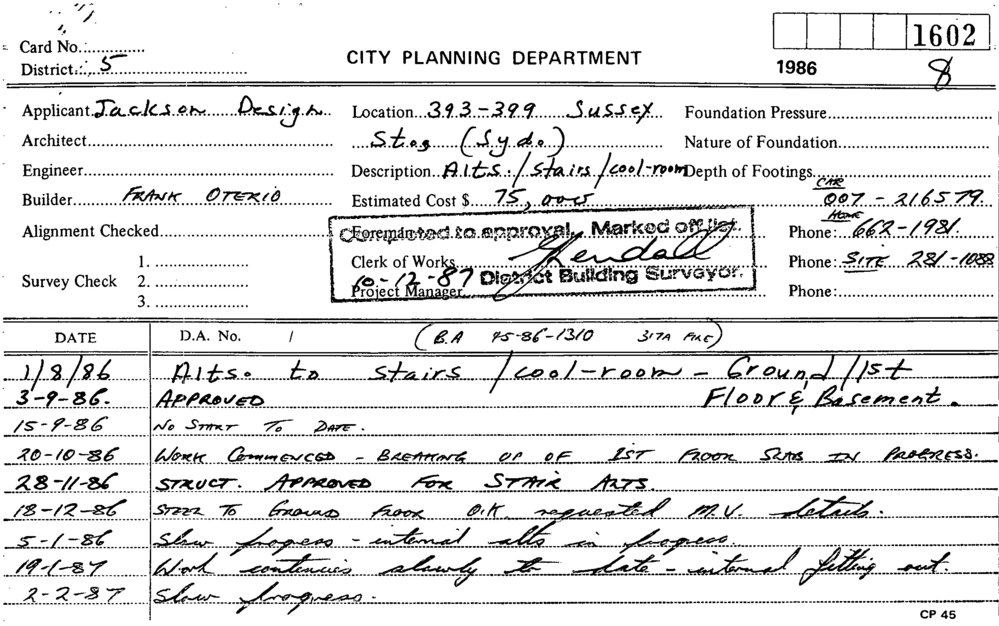 1602
Card No.
District 5
CITY PLANNING DEPARTMENT
1986
8
Applicant Jackson Design
Location 393-399 Sussex
Foundation Pressure
Architect
St.os (Syd.)
Nature of Foundation
Engineer
Description Alts./stairs/cool-room
Depth of Footings
CAR
Builder FRANK OTERIO
Estimated Cost $ 75,000
007 - 216579
HOME
Alignment Checked
Foreman
Completed to approval. Marked off list.
Phone: 662-1981.
Survey Check
1.
2.
3.
Clerk of Works
Kendall
Phone: SITE 281-1088
10-12-87 District Building Surveyor.
Project Manager
Phone:
DATE D.A. No. / (B.A 45-86-1310 317A FILE)
1/8/86 Alts. to stairs/cool-room - Ground/1st
3-9-86. APPROVED Floor & Basement.
15-9-86 NO START TO DATE.
20-10-86 WORK COMMENCED - BREAKING UP OF 1ST FLOOR SLAB IN PROGRESS.
28-11-86 STRUCT. APPROVED FOR STAIR ALTS.
18-12-86 STEEL TO GROUND FLOOR O.K. requested M.V. details.
5-1-86 Slow progress - internal alts in progress.
19-1-87 Work continues slowly to date - internal fitting out.
2-2-87 Slow progress.
CP 45